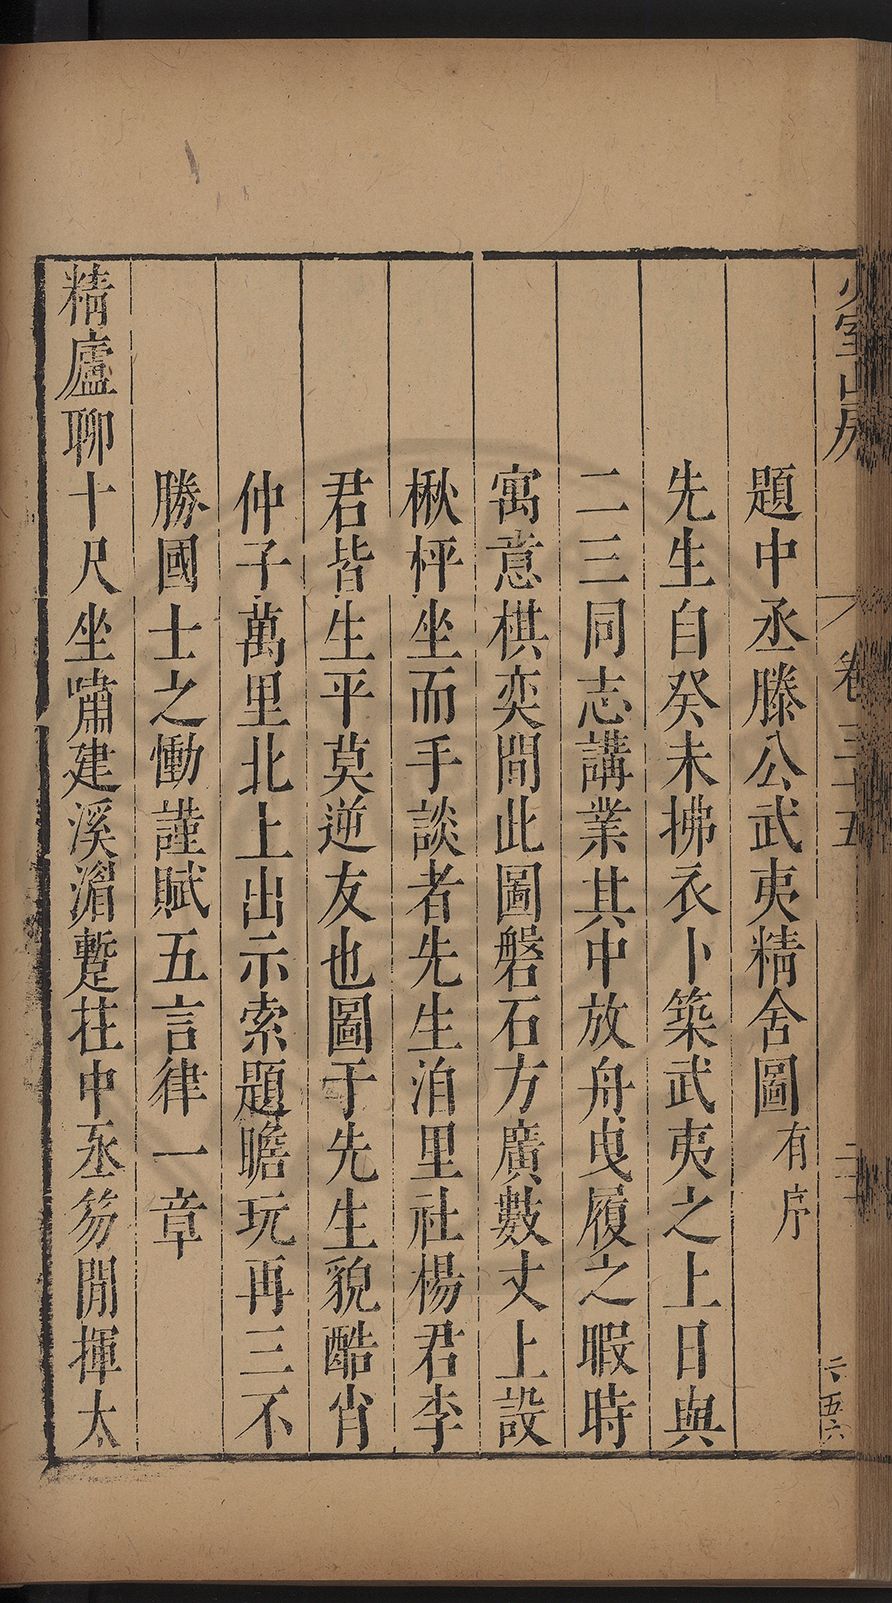 題中丞滕公武夷精舍圖有序
先生自癸未拂衣卜築武夷之上日與
二三同志講業其中放舟曵履之暇時
寓意棋奕間此圖磐石方廣數丈上設
楸枰坐而手談者先生洎里社楊君李
君皆生平莫逆友也圖于先生貌酷肖
仲子萬里北上出示索題瞻玩再三不
勝國士之慟謹賦五言律一章
精廬聊十尺坐嘯建溪湄蹔拄中丞笏閒揮太
卷三十五